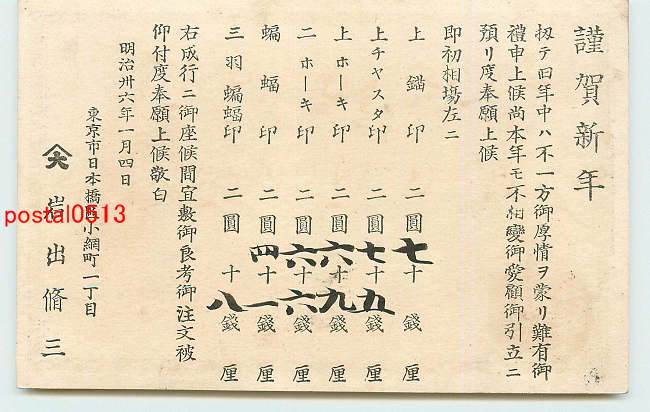 謹賀新年
扨テ旧年中ハ不一方御厚情ヲ蒙リ難有御
禮申上候尚本年モ不相變御愛顧御引立ニ
預リ度奉願上候
即初相場左ニ
上錨印 二圓七十錢厘
上チヤスタ印 二圓七十五錢厘
上ホーキ印 二圓六十九錢厘
二ホーキ印 二圓六十六錢厘
蝙蝠印 二圓四十一錢厘
三羽蝙蝠印 二圓十八錢厘
右成行ニ御座候間宜敷御良考御注文被
仰付度奉願上候敬白
明治卅六年一月四日
東京市日本橋區小網町一丁目
岩出脩三
postal0513